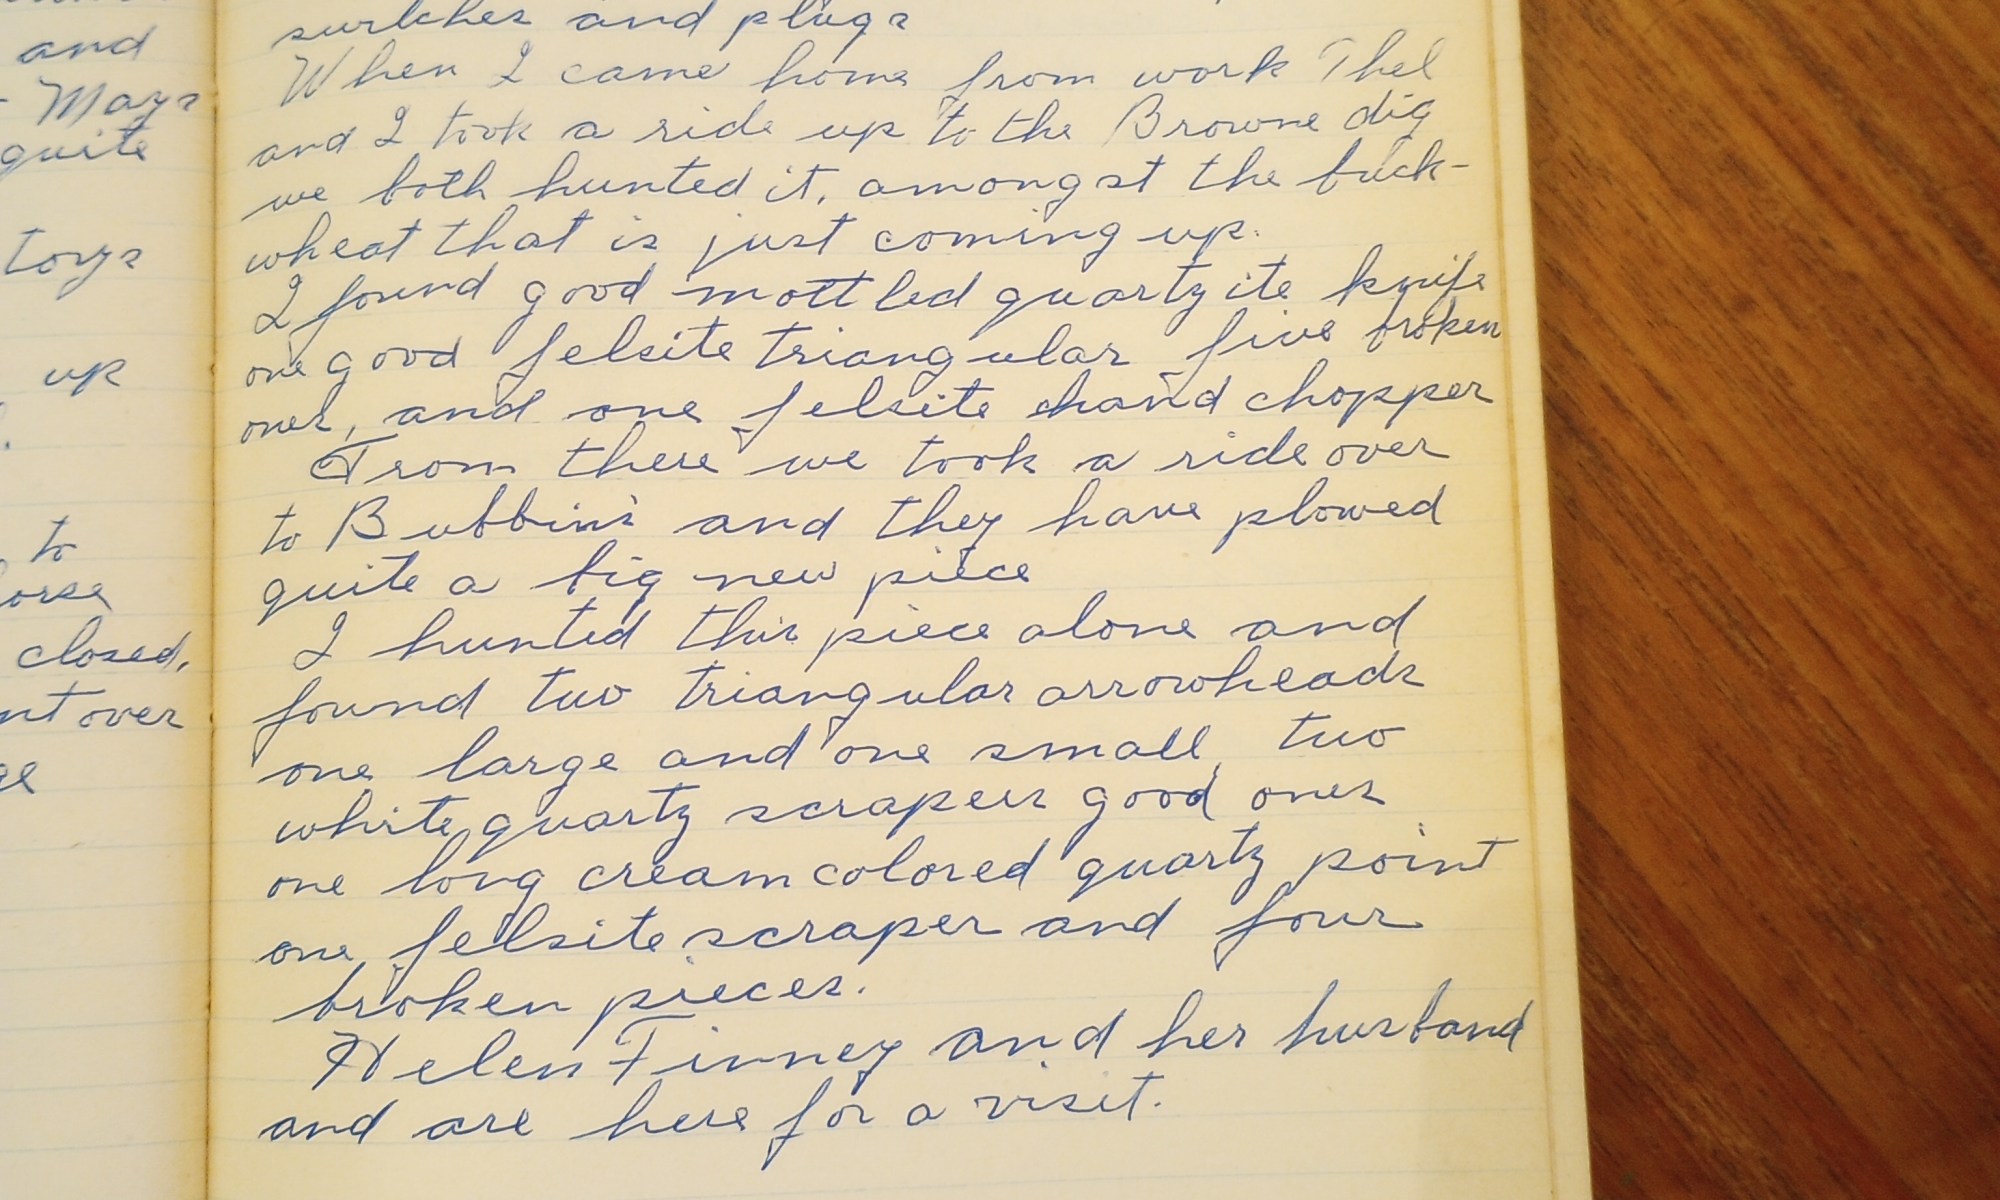 and
Mays
quite
toys
up
to
closed,
over
switches and plugs
When I came home from work Thel
and I took a ride up to the Browne dig
we both hunted it, amongst the buck-
wheat that is just coming up.
I found good mottled quartzite knife
one good felsite triangular five broken
ones, and one felsite hand chopper
From there we took a ride over
to Bubbins and they have plowed
quite a big new piece
I hunted this piece alone and
found two triangular arrowheads
one large and one small, two
white quartz scrapers good ones
one long cream colored quartz point
one felsite scraper and four
broken pieces.
Helen Finney and her husband
and are here for a visit.